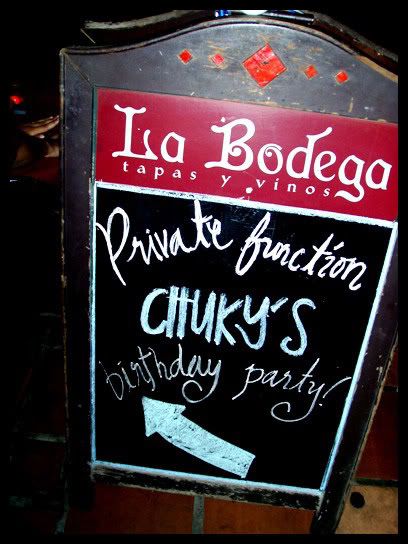 La Bodega
tapas y vinos
Private function
CHUKY'S
birthday party!